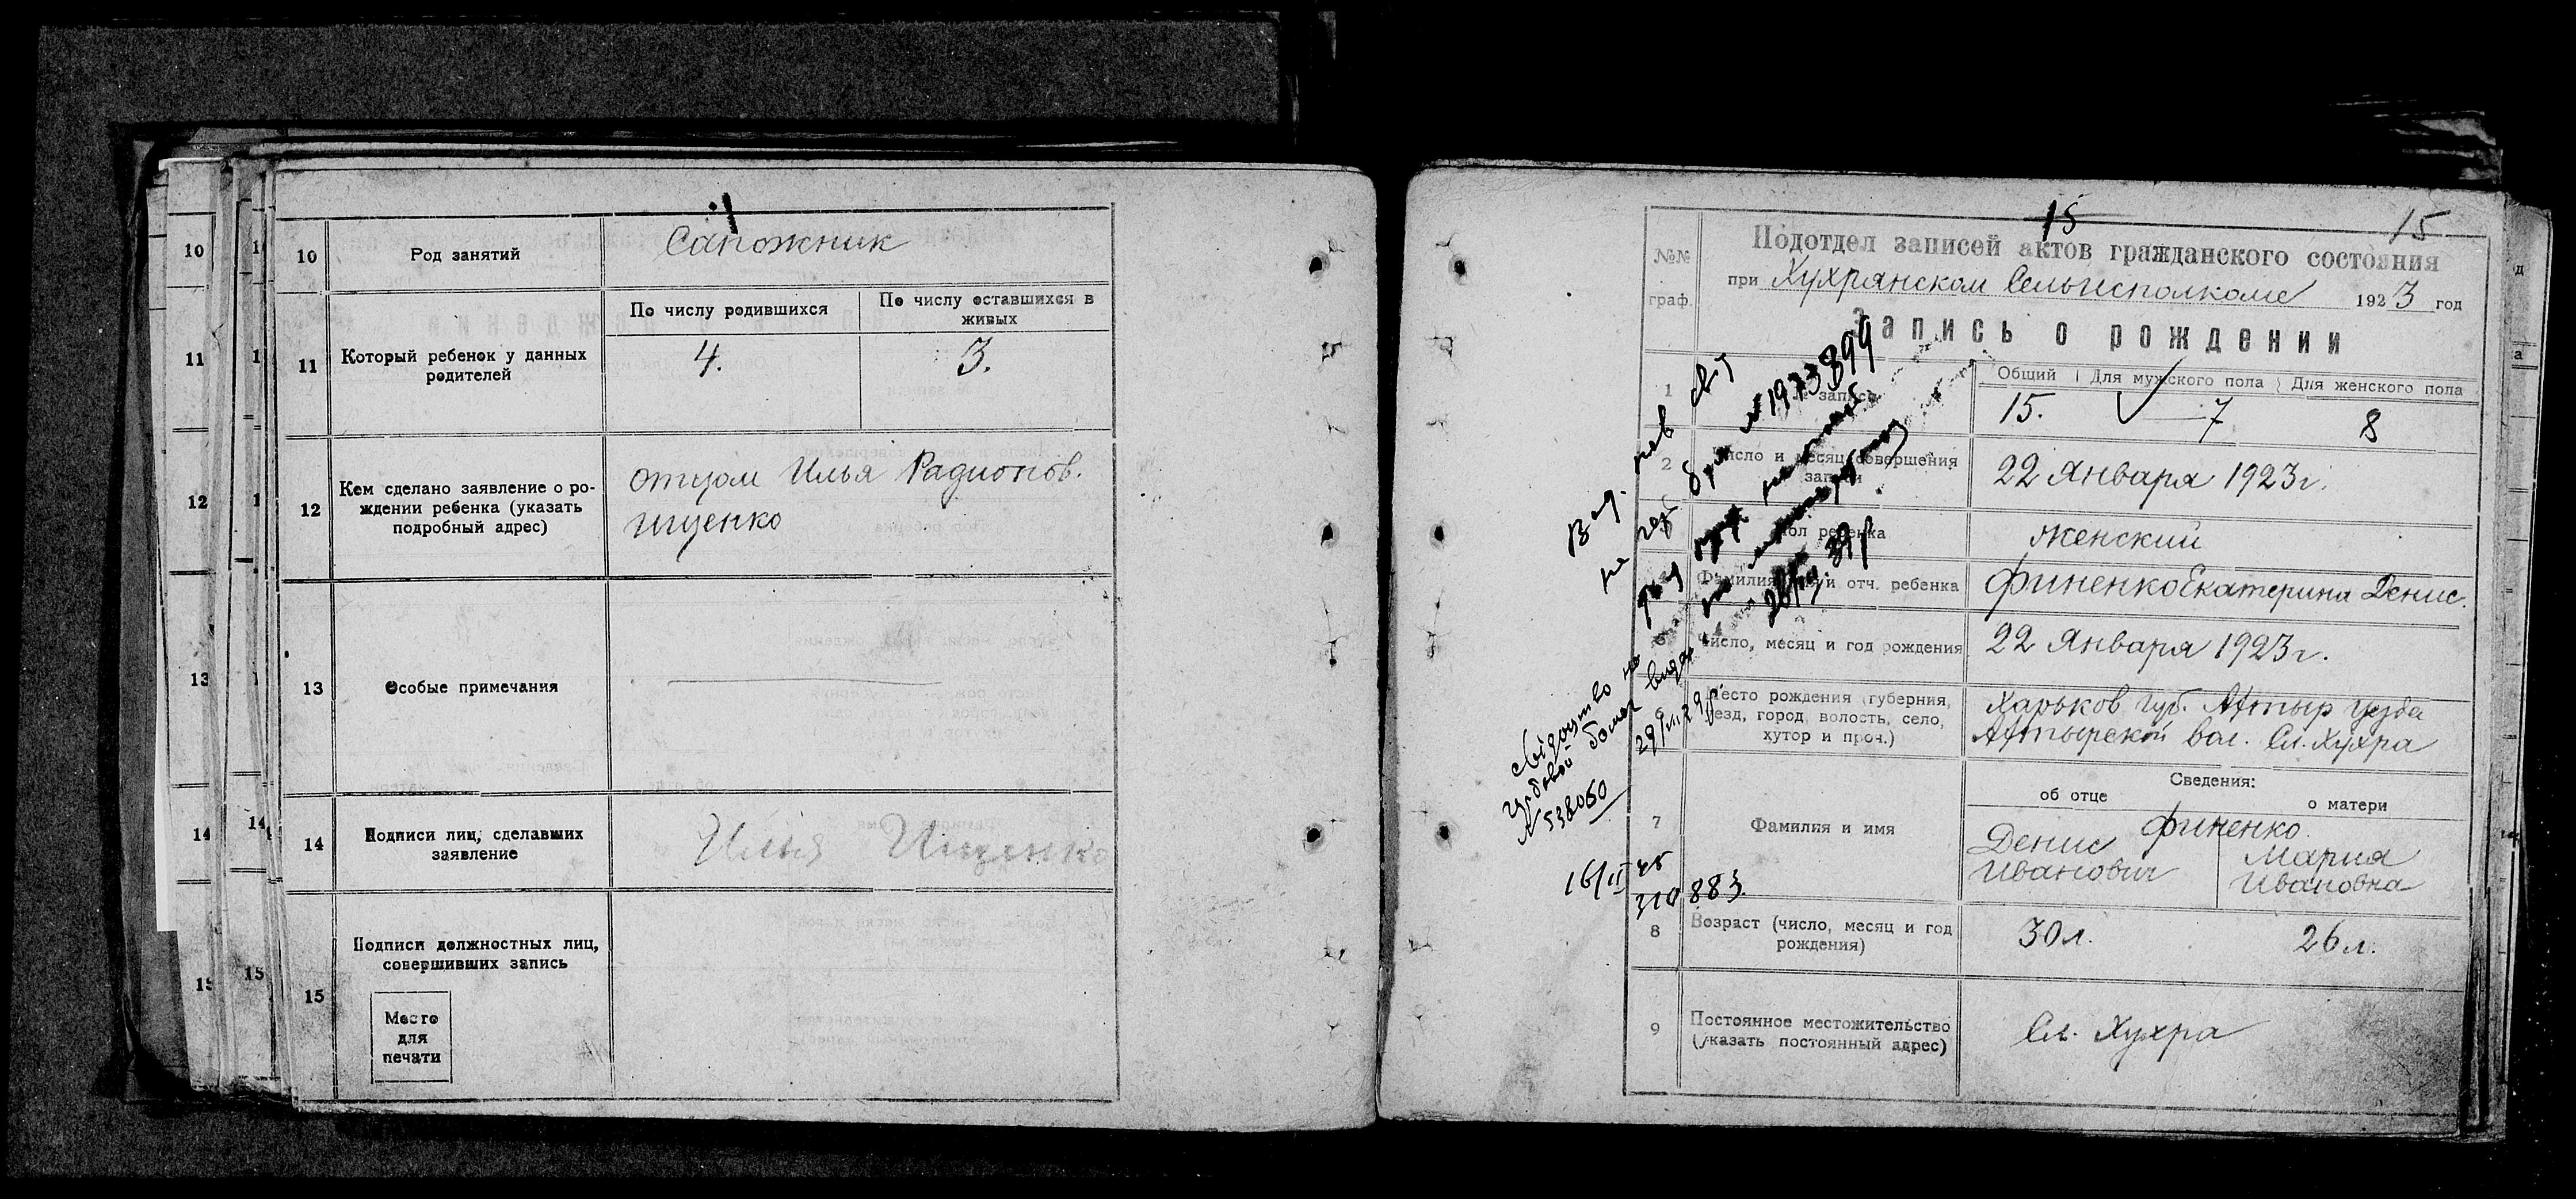 10
11
12
13
14
15
10
Род занятий
Сапожник
11
Который ребенок у данных
родителей
По числу родившихся
По числу оставшихся в
живых
4.
3.
12
Кем сделано заявление о ро-
ждении ребенка (указать
подробный адрес)
отцом Илья Радионов.
Ищенко
13
Особые примечания
14
Подписи лиц, сделавших
заявление
Илья Ищенко
15
Подписи должностных лиц,
совершивших запись
Место
для
печати
15
15
№№
граф.
Подотдел записей актов гражданского состояния
при Хухрянском Сельисполкоме 1923 год
Запись о рождении
1
№ записи
Общий
Для мужского пола
Для женского пола
15.
7
8
2
Число и месяц совершения
записи
22 Января 1923 г.
Пол ребенка
Женский
Фамилия, имя и отч. ребенка
Финенко Екатерина Денис.
5
Число, месяц и год рождения
22 Января 1923 г.
6
Место рождения (губерния,
уезд, город, волость, село,
хутор и проч.)
Харьков губ. Ахтыр уезда
Ахтырской вол. Сл. Хухра
Сведения:
об отце
о матери
7
Фамилия и имя
Финенко
Денис
Иванович
Мария
Ивановна
8
Возраст (число, месяц и год
рождения)
30 л.
26 л.
9
Постоянное местожительство
(указать постоянный адрес)
Сл. Хухра
№ 1973899
свідоцтво на
видан
№ 538060
16/II 45
310883.